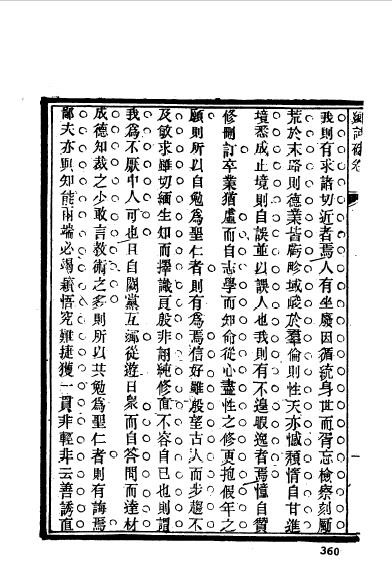 我則有求諸切近者焉人有坐廢因循統身世而胥忘檢察刻厲
荒於末路則德業皆虧畛域峻於羣倫則性天亦憾頹情自甘進
境悉成止境則自誤並以誤人也我則有不遑暇逸者焉懂自贊
修刪訂卒業猶虛而自志學而知命從心盡性之修更抱假年之
願則所以自勉爲聖仁者則有爲焉信好雖殷望古人而步趨不
及敏求雖切緬生知而擇識頁殷非謂純修直不容自已也則謂
我爲不厭中人可也且自闕黨互鄉從遊日衆而自答問而達材
成德知裁之少敢言教術之多則所以共勉爲聖仁者則有誨焉
鄙夫亦與知能兩端必竭穎悟究難捷獲一貫非輕非云善誘直
360